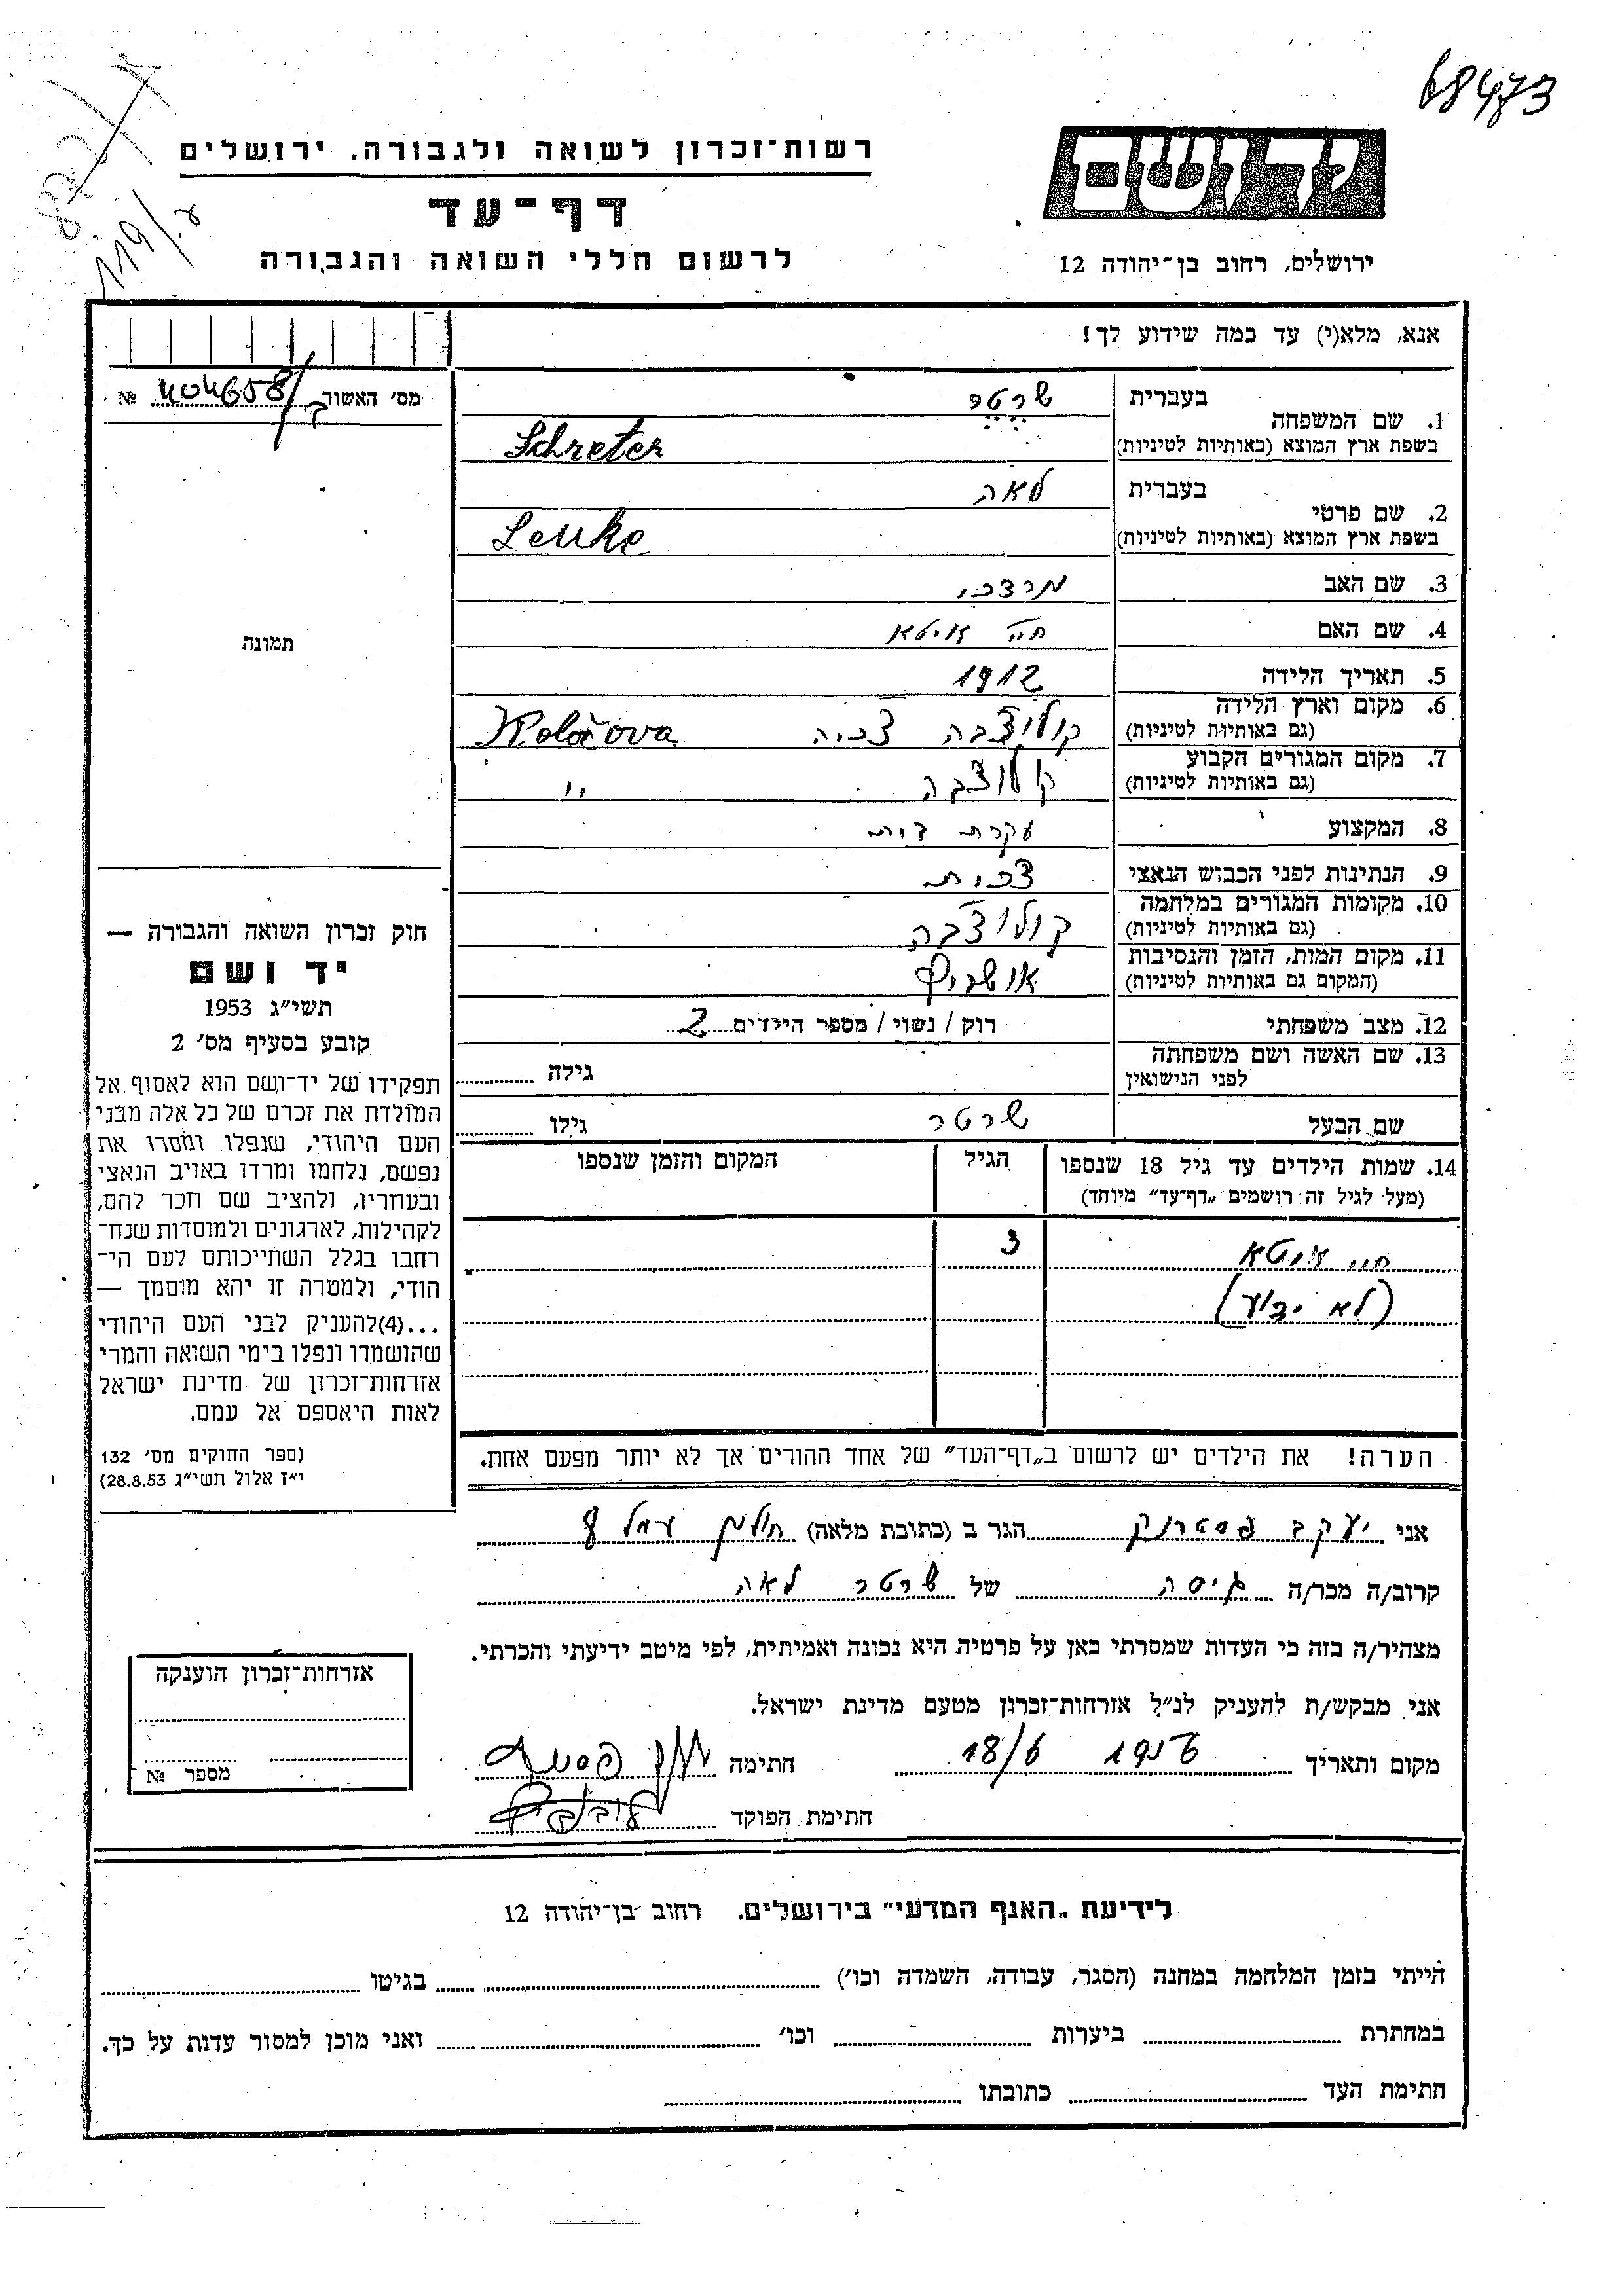 68473
רשות-זכרון לשואה ולגבורה, ירושלים
יד ושם
דף-עד
לרשום חללי השואה והגבורה
ירושלים, רחוב בן-יהודה 12
119/
אנא, מלא(י) עד כמה שידוע לך!
מס׳ האשור № 404658/
1. שם המשפחה בעברית שרטר
בשפת ארץ המוצא (באותיות לטיניות) Schreter
2. שם פרטי בעברית לאה
בשפת ארץ המוצא (באותיות לטיניות) Lenke
3. שם האב מרדכי
4. שם האם חיה איטא
תמונה
5. תאריך הלידה 1912
6. מקום וארץ הלידה (גם באותיות לטיניות) קולוצ'בה צ'כיה Koločova
7. מקום המגורים הקבוע (גם באותיות לטיניות) קולוצ'בה "
8. המקצוע עקרת בית
9. הנתינות לפני הכבוש הנאצי צ'כית
10. מקומות המגורים במלחמה (גם באותיות לטיניות) קולוצ'בה
11. מקום המות, הזמן והנסיבות (המקום גם באותיות לטיניות) אושביץ
12. מצב משפחתי רוק / נשוי / מספר הילדים 2
13. שם האשה ושם משפחתה לפני הנישואין גילה
שם הבעל שרטר גילו
14. שמות הילדים עד גיל 18 שנספו (מעל לגיל זה רושמים „דף-עד״ מיוחד) הגיל המקום והזמן שנספו
חיי איטא 3
(לא ידוע)
הערה! את הילדים יש לרשום ב„דף-העד״ של אחד ההורים אך לא יותר מפעם אחת.
חוק זכרון השואה והגבורה —
יד ושם
תשי״ג 1953
קובע בסעיף מס׳ 2
תפקידו של יד-ושם הוא לאסוף אל
המולדת את זכרם של כל אלה מבני
העם היהודי, שנפלו ומסרו את
נפשם, נלחמו ומרדו באויב הנאצי
ובעוזריו, ולהציב שם וזכר להם,
לקהילות, לארגונים ולמוסדות שנח-
רחבו בגלל השתייכותם לעם הי-
הודי, ולמטרה זו יהא מוסמך —
...(4)להעניק לבני העם היהודי
שהושמדו ונפלו בימי השואה והמרי
אזרחות-זכרון של מדינת ישראל
לאות היאספם אל עמם.
(ספר החוקים מס׳ 132
י״ז אלול תשי״ג 28.8.53)
אני יעקב פסטרנק הגר ב (כתובת מלאה) חולון עמל 8
קרוב/ה מכר/ה גיסה של שרטר לאה
מצהיר/ה בזה כי העדות שמסרתי כאן על פרטיה היא נכונה ואמיתית, לפי מיטב ידיעתי והכרתי.
אני מבקש/ת להעניק לנ״ל אזרחות-זכרון מטעם מדינת ישראל.
מקום ותאריך 1957 18/6 חתימה
חתימת הפוקד
אזרחות-זכרון הוענקה
מספר №
לידיעת „האגף המדעי״ בירושלים. רחוב בן-יהודה 12
הייתי בזמן המלחמה במחנה (הסגר, עבודה, השמדה וכו׳) בגיטו
במחתרת ביערות וכו׳ ואני מוכן למסור עדות על כך.
חתימת העד כתובתו